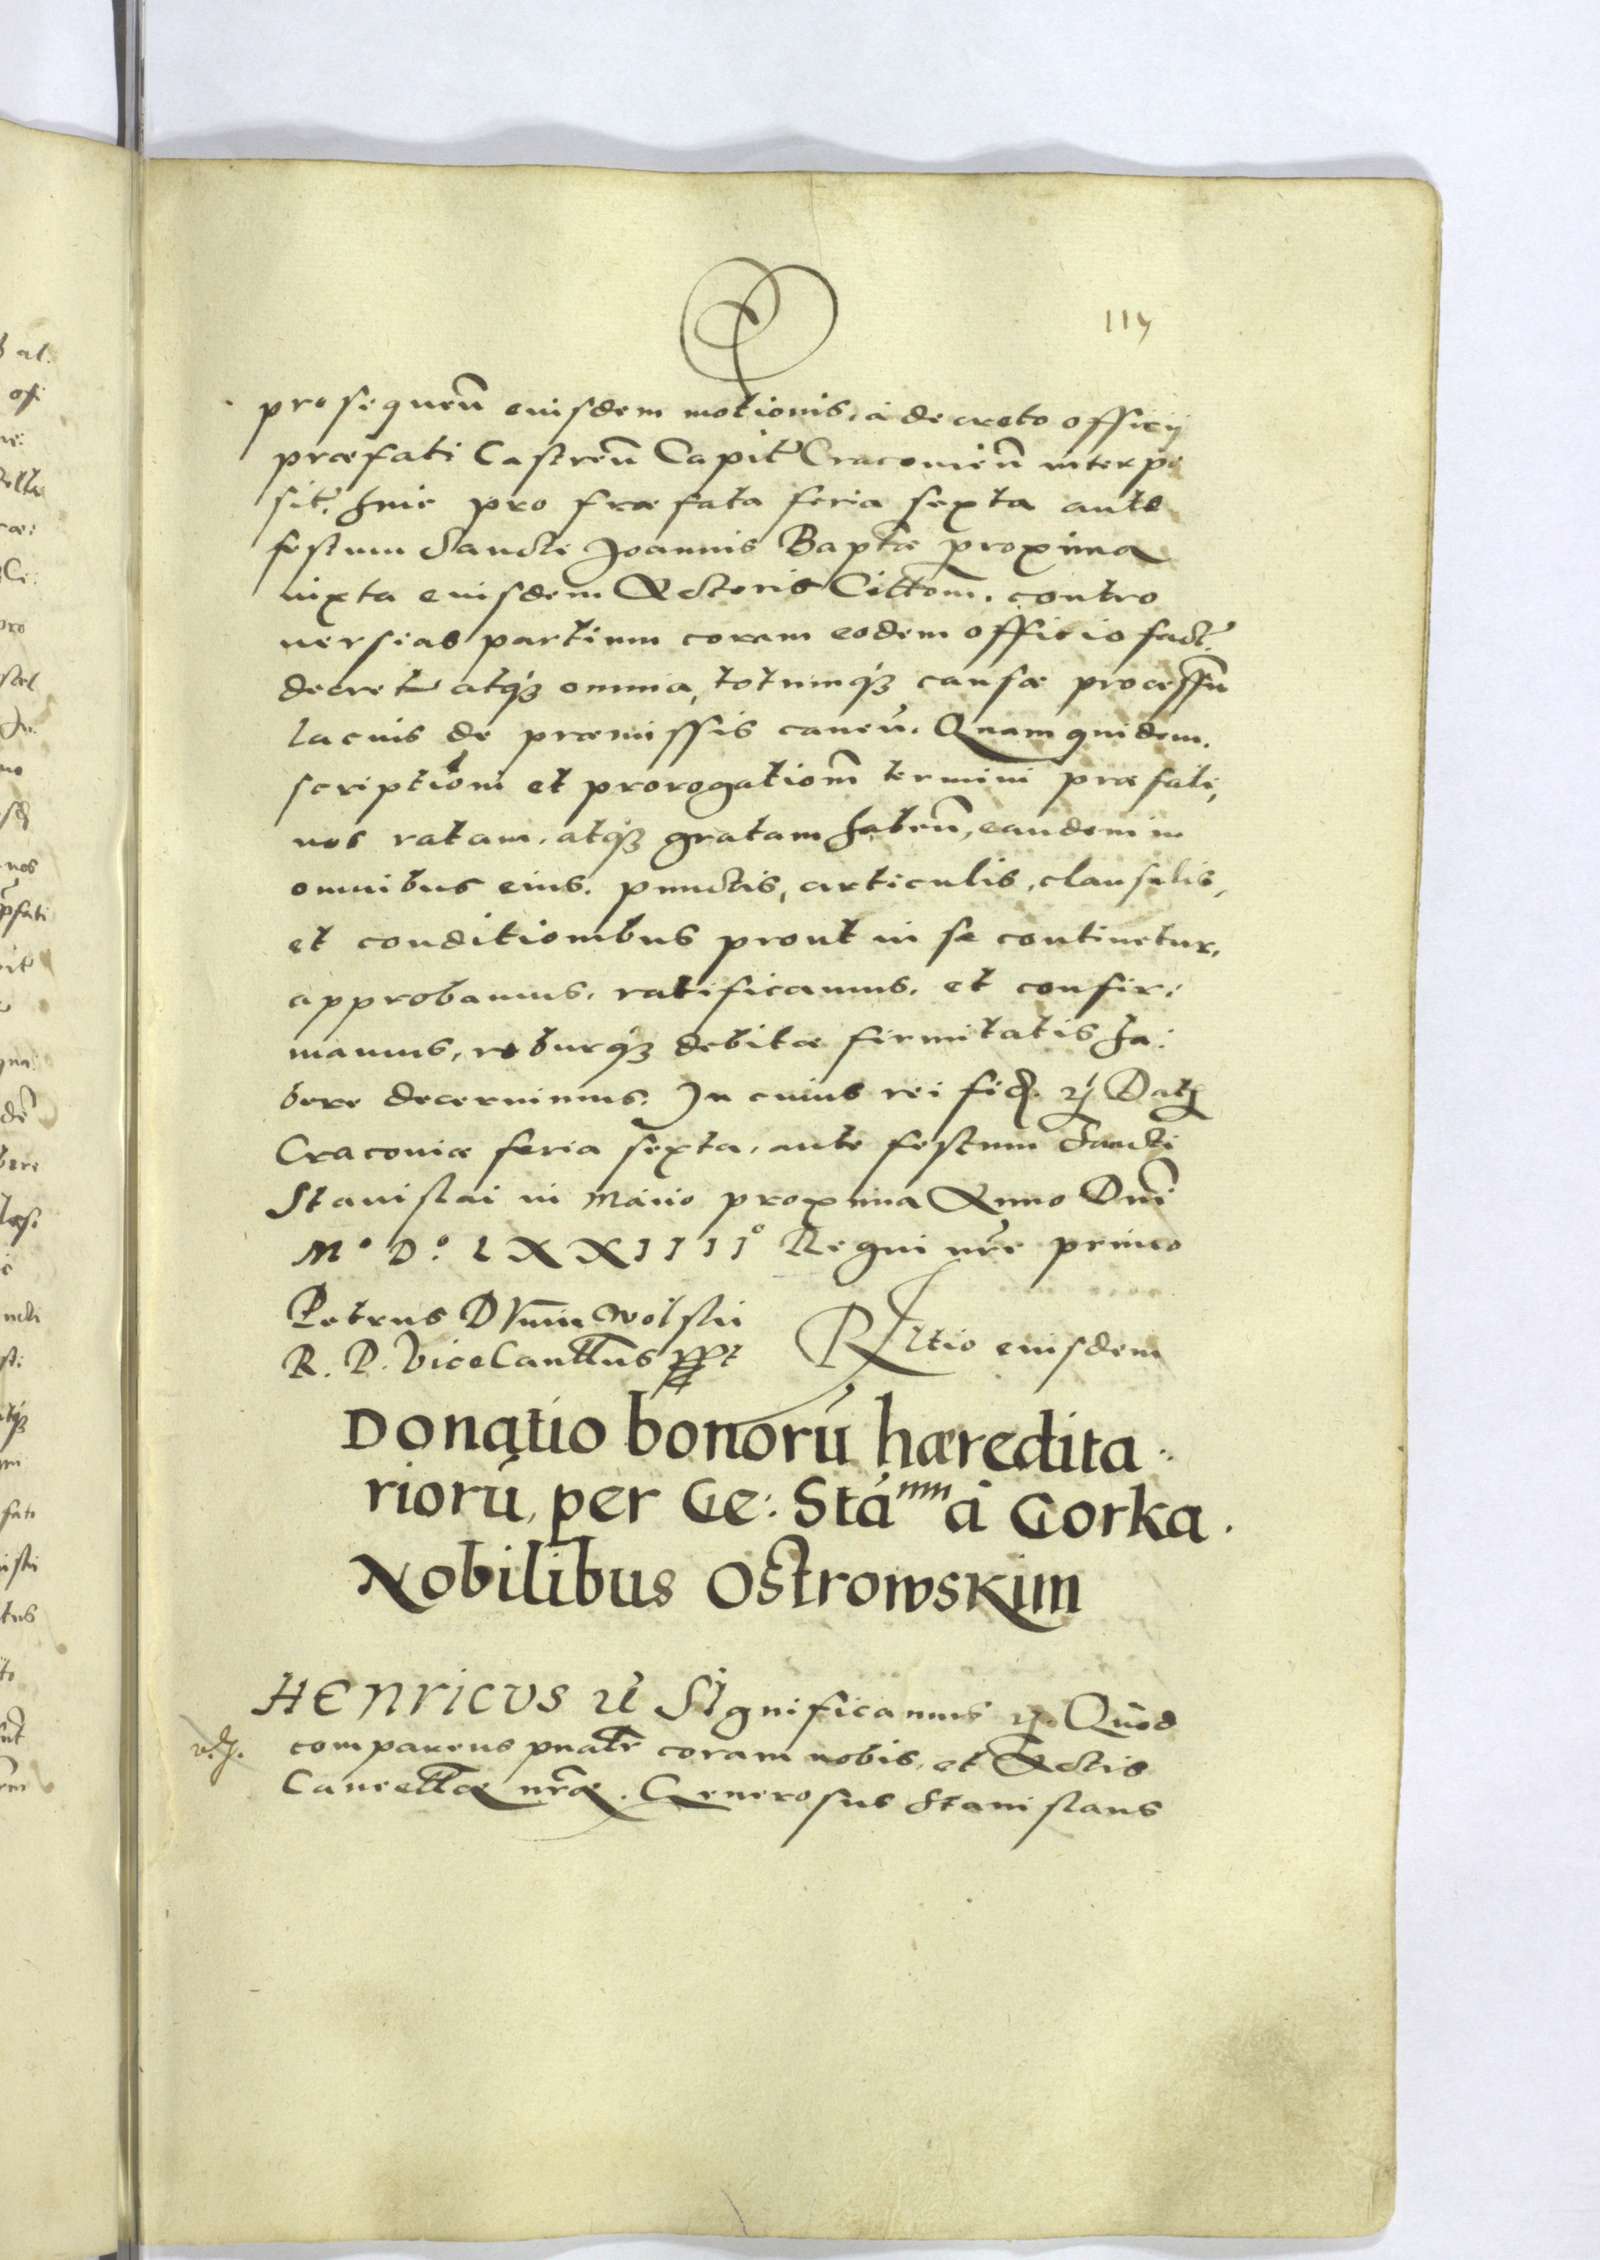 115
prosequen̄ eiusdem motionis, à decreto officij
præfati Castren̄ Capit̃ Cracouien̄ interpo
sit̃. huic pro præfata feria sexta ante
festum Sancti Joannis Baptæ proxima
iuxta eiusdem Actoris Citt̃om̄. contro
uersias partium coram eodem officio fact̃.
decretu atq́ʒ omnia, totumq́ʒ causæ processū
lacius de præmissis canen̄. Quam quidem.
scription̄ et prorogation̄ termini præfati,
nos ratam, atq́ʒ gratam haben̄, eandem in
omnibus eius. punctis, articulis, clausulis,
et conditionibus prout in se continetur,
approbamus. ratificamus. et confir:
mamus, roburq́ʒ debitæ firmitatis ha:
bere decernimus. In cuius rei fid. Datʒ
Cracouiæ feria sexta, ante festum Sancti
Stanislai in Maiio proxima Anno Dn̄i
Mº Dº LXXIIIIº Regni nr̄e primo
Petrus Wolski
R. P. ViceCancell̄us Rltio eiusdem
Donatio bonorū hæredita:
riorū, per Ge: Stáⁿⁿⁿ à Gorka.
Nobilibus Ostrowskim
HENRICVS Significamus Quod
comparens pn̄atr̄ coram nobis, et Actis
Cancell̄æ nr̄æ. Generosus Stanislaus